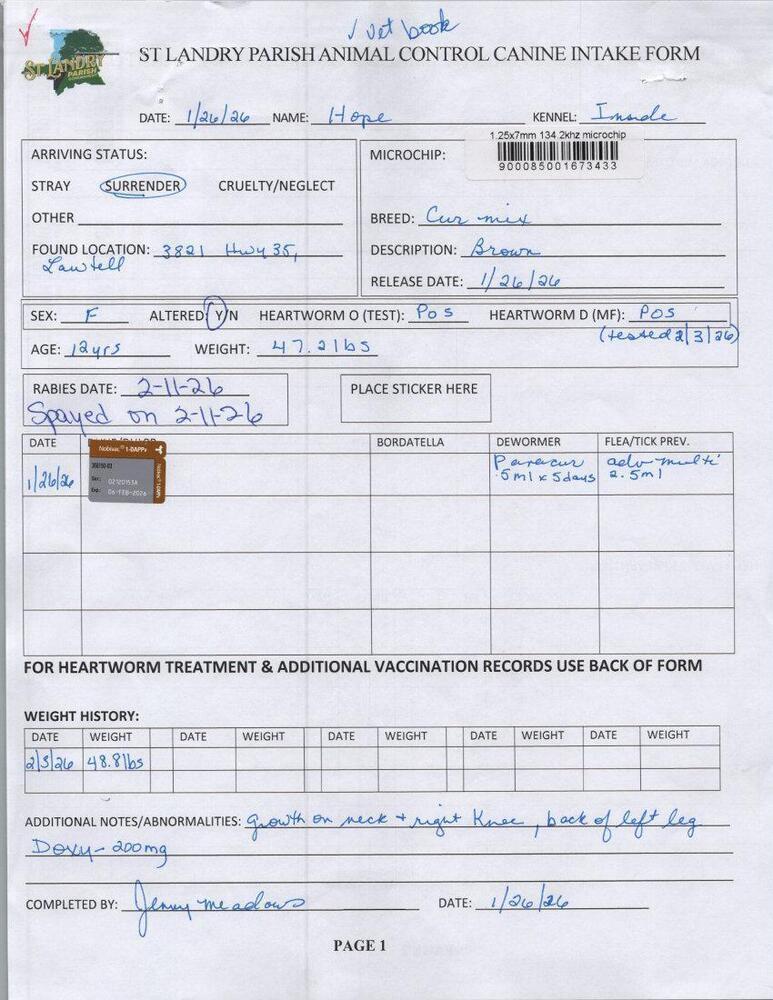 ✓ vet book
ST LANDRY PARISH
ST LANDRY PARISH ANIMAL CONTROL CANINE INTAKE FORM
DATE: 1/26/26 NAME: Hope KENNEL: Inside
ARRIVING STATUS:
STRAY SURRENDER CRUELTY/NEGLECT
OTHER
FOUND LOCATION: 3821 Hwy 35,
Lawtell
1.25x7mm 134.2khz microchip
MICROCHIP:
900085001673433
BREED: Cur mix
DESCRIPTION: Brown
RELEASE DATE: 1/26/26
SEX: F ALTERED: Y/N HEARTWORM O (TEST): Pos HEARTWORM D (MF): POS
(tested 2/3/26)
AGE: 12yrs WEIGHT: 47.2lbs
RABIES DATE: 2-11-26
Spayed on 2-11-26
PLACE STICKER HERE
DATE BORDATELLA DEWORMER FLEA/TICK PREV.
1/26/26
Nobivac 1-DAPPv
02120153A
06-FEB-2026
Paracur
.5ml x 5days
adv multi
2.5ml
FOR HEARTWORM TREATMENT & ADDITIONAL VACCINATION RECORDS USE BACK OF FORM
WEIGHT HISTORY:
DATE WEIGHT DATE WEIGHT DATE WEIGHT DATE WEIGHT DATE WEIGHT
2/3/26 48.8lbs
ADDITIONAL NOTES/ABNORMALITIES: Growth on neck + right Knee, back of left leg
Doxy- 200mg
COMPLETED BY: Jenny Meadows DATE: 1/26/26
PAGE 1